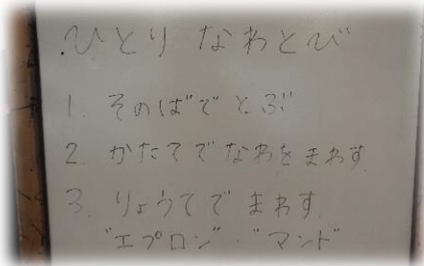 ・ひとり なわとび
1. そのばで とぶ
2. かたてでなわをまわす
3. りょうてで まわす
"エプロン"・"マント"